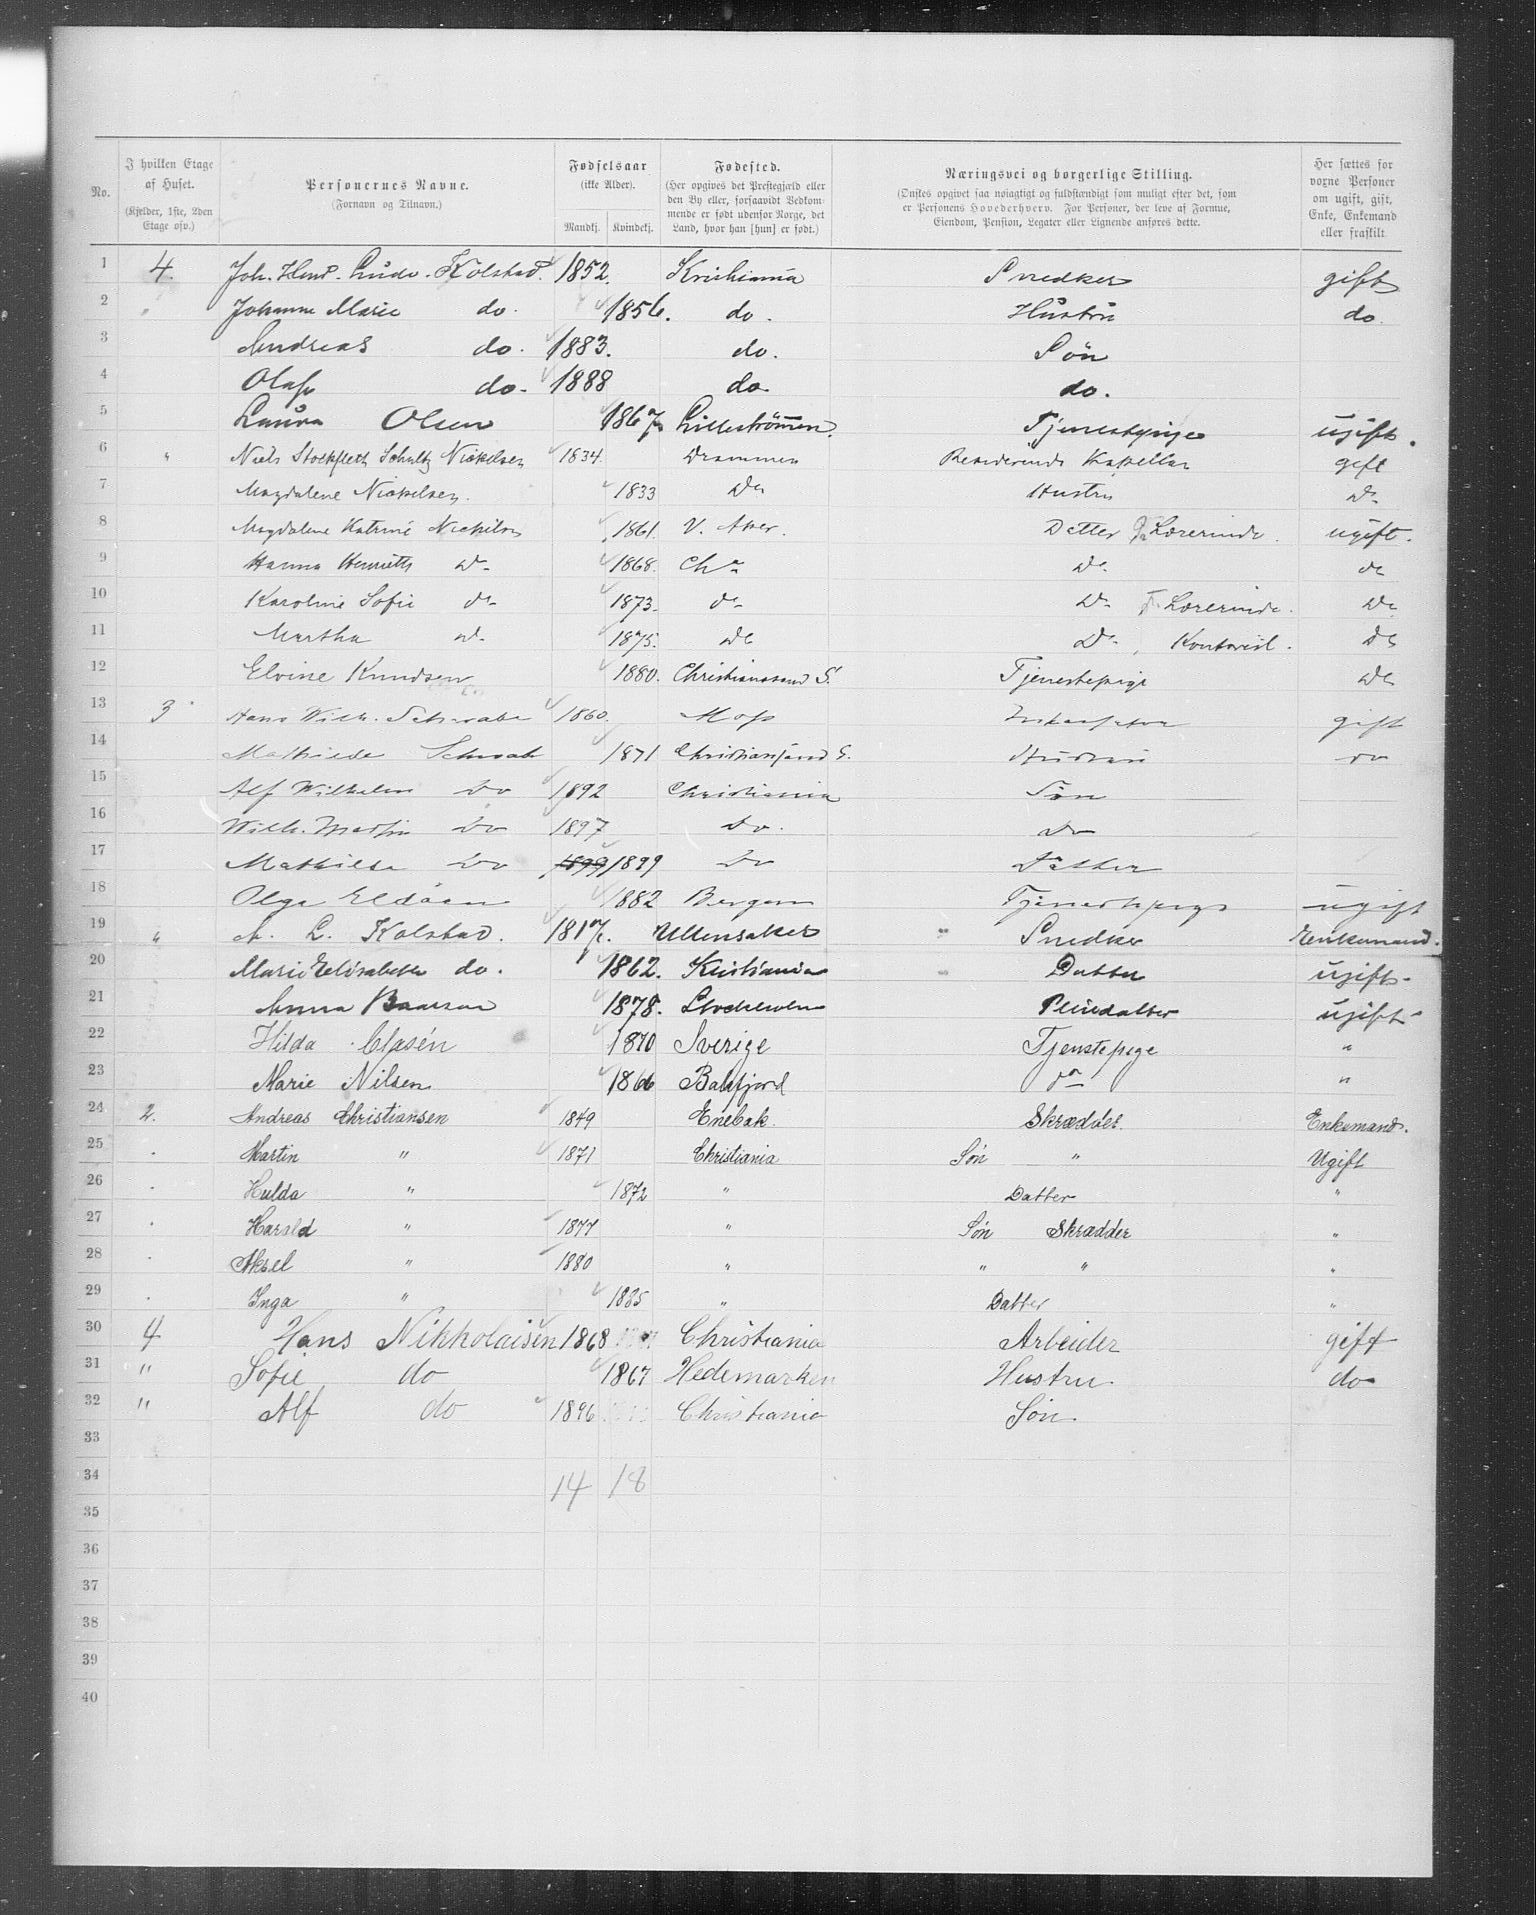 No. | I hvilken Etage af Huset. (Kjelder, 1ste, 2den Etage osv.) | Personernes Navne. (Fornavn og Tilnavn.) | Fødselsaar (ikke Alder). Mandkj. Kvindekj. | Fødested. (Her opgives det Prestegjæld eller den By eller, forsaavidt Vedkommende er født udenfor Norge, det Land, hvor han [hun] er født.) | Næringsvei og borgerlige Stilling. (Ønskes opgivet saa nøiagtigt og fuldstændigt som muligt efter det, som er Personens Hovederhverv. For Personer, der leve af Formue, Eiendom, Pension, Legater eller Lignende anføres dette. | Her sættes for voxne Personer om ugift, gift, Enke, Enkemand eller fraskilt
1 4. Joh. Hend. Ludv. Kolstad. 1852. Kristiania Snedker gift
2 " Johanne Marie do. 1856. do. Hustru do.
3 Andreas do. 1883. do. Søn
4 Olaf do. 1888 do. do.
5 Laura Olsen 1867. Lillestrømmen. Tjenestepige ugift.
6 " Niels Stockfleth Schultz Nickelsen 1834. Drammen Residerende Kapellan gift
7 Magdalene Nickelsen. 1833 do Hustru do
8 Magdalene Katrine Nickelsen 1861. V. Aker. Datter Lærerinde. ugift.
9 Hanna Henriette do 1868. Cha do do
10 Karoline Sofie do 1873. do do Lærerinde. do
11 Martha do 1875. do do, Kontorist. do
12 Elvine Knudsen 1880. Christianssand S. Tjenestepige do
13 3 Hans Wilh. Schwabe 1860. Moss gift
14 Mathilde Schwabe 1871 Christianssand S. Hustru do
15 Alf Wilhelm Do 1892 Christiania Søn
16 Wilh. Martin Do 1897 Do. Do
17 Mathilde Do 1899 1899 Do Datter
18 Olga 1882 Bergen Tjenestepige ugift
19 " A. L. Kolstad. 1817. Ullensaker " Snedker Enkemand.
20 Marie Elisabeth do. 1862. Kristiania " Datter ugift.
21 Anna 1878. Stockholm Pleiedatter ugift
22 Hilda Clasén 1870 Sverige Tjenstepige "
23 Marie Nilsen 1866 Balsfjord do "
24 2. Andreas Christiansen 1849 Enebak. Skrædder. Enkemand.
25 " Martin " 1871 Christiania Søn " Ugift
26 " Hulda " 1872 " Datter "
27 " Harald " 1877 " Søn Skrædder "
28 " Aksel " 1880 " " " "
29 " Inga " 1885 " Datter "
30 4 Hans Nikkolaisen 1868 Christiania Arbeider gift
31 " Sofie do 1867 Hedemarken Hustru do
32 " Alf do 1896 Christiania Søn.
33
34 14 18
35
36
37
38
39
40